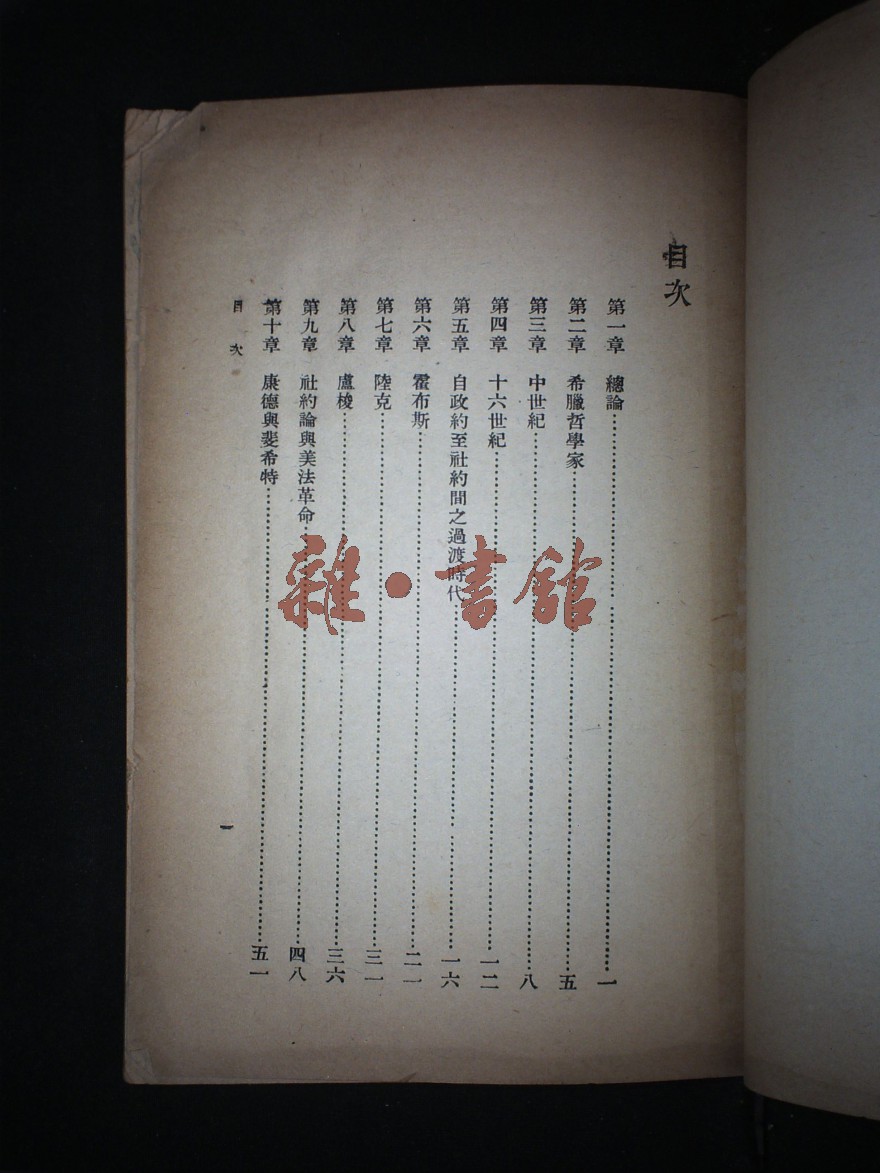 目次
第一章 總論……一
第二章 希臘哲學家……五
第三章 中世紀……八
第四章 十六世紀……一二
第五章 自政約至社約間之過渡時代……一六
第六章 霍布斯……二一
第七章 陸克……三一
第八章 盧梭……三六
第九章 社約論與美法革命……四八
第十章 康德與斐希特……五一
目次
一
雜·書館